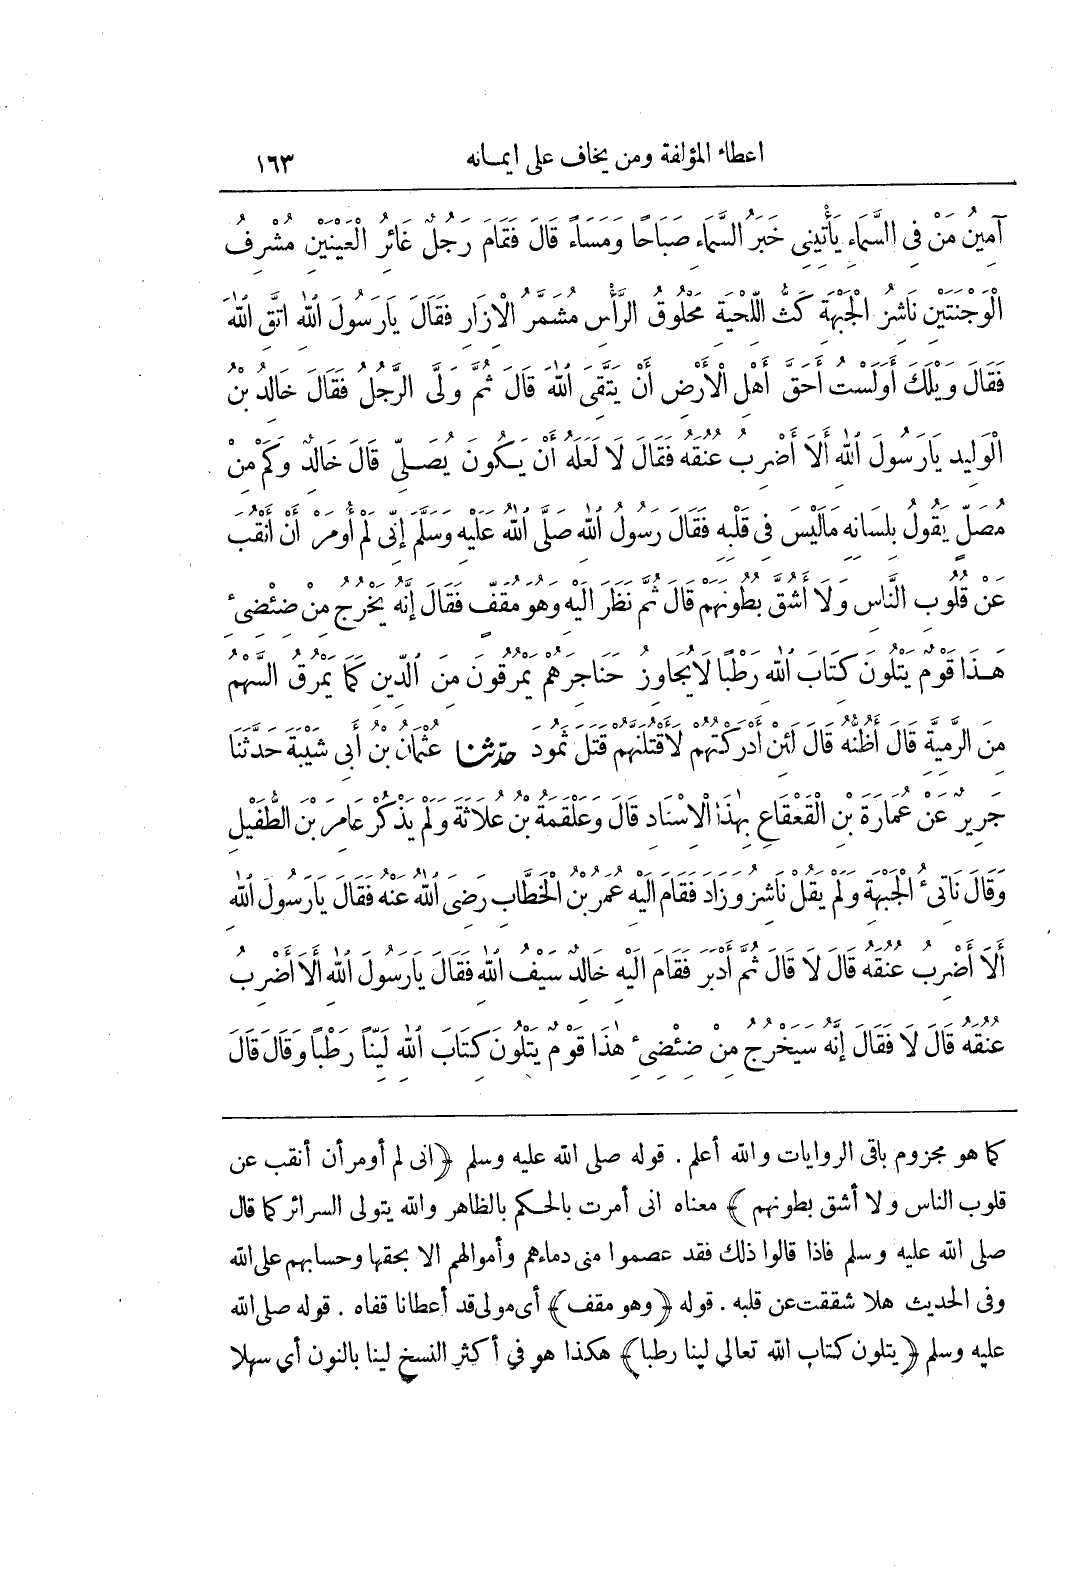 اعطاء المؤلفة ومن يخاف على ايمانه ١٦٣
آمِينُ مَنْ فِى السَّمَاءِ يَأْتِينِى خَبَرُ السَّمَاءِ صَبَاحًا وَمَسَاءً قَالَ فَقَامَ رَجُلٌ غَائِرُ الْعَيْنَيْنِ مُشْرِفُ
الْوَجْنَتَيْنِ نَاشِزُ الْجَبْهَةِ كَثُّ اللِّحْيَةِ مَحْلُوقُ الرَّأْسِ مُشَمَّرُ الْازَارِ فَقَالَ يَارَسُولَ اللهِ اتَّقِ اللهَ
فَقَالَ وَيْلَكَ أَوَلَسْتُ أَحَقَّ أَهْلِ الْأَرْضِ أَنْ يَتَّقِىَ اللهَ قَالَ ثُمَّ وَلَّى الرَّجُلُ فَقَالَ خَالِدُ بْنُ
الْوَلِيدِ يَارَسُولَ اللهِ أَلَا أَضْرِبُ عُنُقَهُ فَقَالَ لَا لَعَلَّهُ أَنْ يَكُونَ يُصَلِّى قَالَ خَالِدٌ وَكَمْ مِنْ
مُصَلٍّ يَقُولُ بِلِسَانِهِ مَالَيْسَ فِى قَلْبِهِ فَقَالَ رَسُولُ اللهِ صَلَّى اللهُ عَلَيْهِ وَسَلَّمَ إِنِّى لَمْ أُومَرْ أَنْ أَنْقُبَ
عَنْ قُلُوبِ النَّاسِ وَلَا أَشُقَّ بُطُونَهُمْ قَالَ ثُمَّ نَظَرَ الَيْهِ وَهُوَ مُقَفٍّ فَقَالَ إِنَّهُ يَخْرُجُ مِنْ ضِئْضِئِ
هَذَا قَوْمٌ يَتْلُونَ كِتَابَ اللهِ رَطْبًا لَايُجَاوِزُ حَنَاجِرَهُمْ يَمْرُقُونَ مِنَ الدِّينِ كَمَا يَمْرُقُ السَّهْمُ
مِنَ الرَّمِيَّةِ قَالَ أَظُنُّهُ قَالَ لَئِنْ أَدْرَكْتُهُمْ لَأَقْتُلَنَّهُمْ قَتْلَ ثَمُودَ حَدَّثَنَا عُثْمَانُ بْنُ أَبِى شَيْبَةَ حَدَّثَنَا
جَرِيرٌ عَنْ عُمَارَةَ بْنِ الْقَعْقَاعِ بِهَذَا الْاِسْنَادِ قَالَ وَعَلْقَمَةُ بْنُ عُلَاثَةَ وَلَمْ يَذْكُرْ عَامِرَ بْنَ الطُّفَيْلِ
وَقَالَ نَاتِئُ الْجَبْهَةِ وَلَمْ يَقُلْ نَاشِزُ وَزَادَ فَقَامَ الَيْهِ عُمَرُ بْنُ الْخَطَّابِ رَضِىَ اللهُ عَنْهُ فَقَالَ يَارَسُولَ اللهِ
أَلَا أَضْرِبُ عُنُقَهُ قَالَ لَا قَالَ ثُمَّ أَدْبَرَ فَقَامَ الَيْهِ خَالِدٌ سَيْفُ اللهِ فَقَالَ يَارَسُولَ اللهِ أَلَا أَضْرِبُ
عُنُقَهُ قَالَ لَا فَقَالَ إِنَّهُ سَيَخْرُجُ مِنْ ضِئْضِئِ هَذَا قَوْمٌ يَتْلُونَ كِتَابَ اللهِ لَيِّنًا رَطْبًا وَقَالَ قَالَ
كما هو مجزوم باقى الروايات والله أعلم . قوله صلى الله عليه وسلم ﴿انى لم أومر أن أنقب عن
قلوب الناس ولا أشق بطونهم﴾ معناه انى أمرت بالحكم بالظاهر والله يتولى السرائر كما قال
صلى الله عليه وسلم فاذا قالوا ذلك فقد عصموا منى دماءهم وأموالهم الا بحقها وحسابهم على الله
وفى الحديث هلا شققت عن قلبه . قوله ﴿وهو مقف﴾ أى مولى قد أعطانا قفاه . قوله صلى الله
عليه وسلم ﴿يتلون كتاب الله تعالى لينا رطبا﴾ هكذا هو في أكثر النسخ لينا بالنون أي سهلا